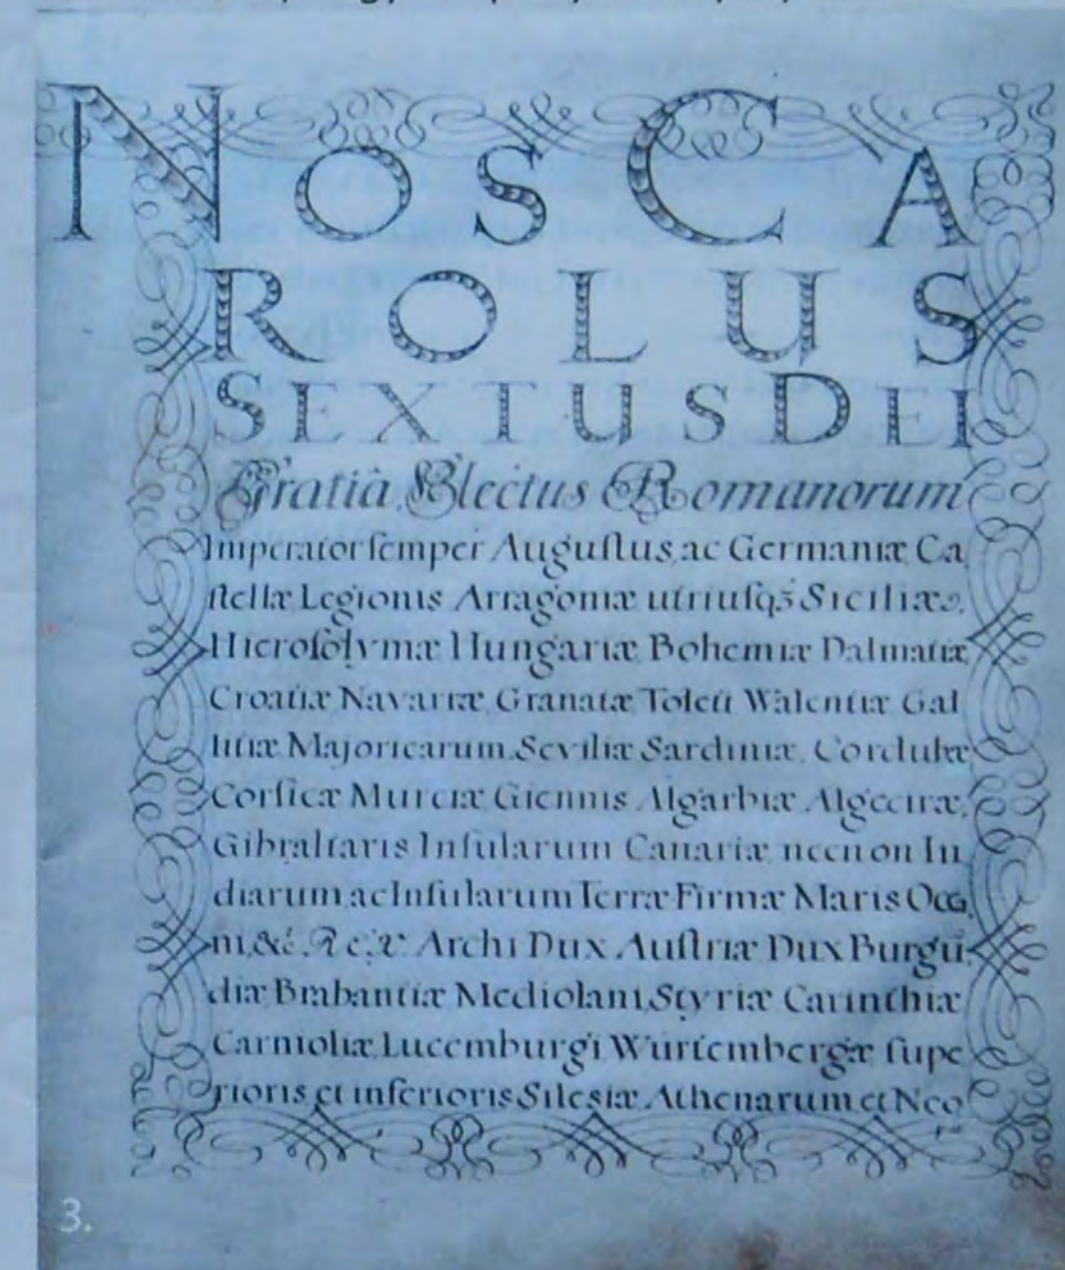 NOS CA
ROLUS
SEXTUS DEI
Gratiâ Electus Romanorum
Imperator ſemper Auguſtus, ac Germaniæ Ca
ſtellæ Legionis Arragoniæ utriuſq3 Siciliæ,
Hieroſolymæ Hungariæ Bohemiæ Dalmatiæ,
Croatiæ Navarræ, Granatæ Toleti Walentiæ Gal
litiæ Majoricarum, Seviliæ Sardiniæ, Cordubæ
Corſicæ Murciæ Giennis Algarbiæ Algeciræ,
Gibraltaris Inſularum Canariæ necnon In
diarum, ac Inſularum Terræ Firmæ Maris Oceā
ni, &c. Archi Dux Auſtriæ Dux Burgū
diæ Brabantiæ Mediolani, Styriæ Carinthiæ
Carnioliæ, Lucemburgi Würtembergæ ſupe
rioris et inferioris Silesiæ Athenarum et Neo
3.